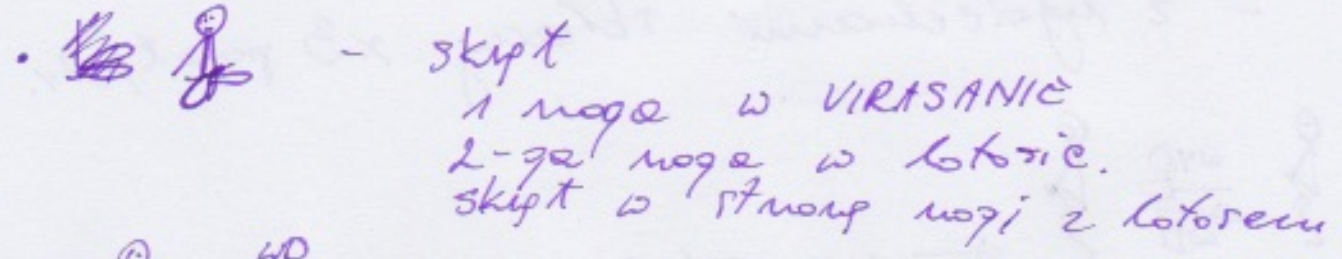 - skręt
1 noga w VIRASANIE
2-ga noga w lotosie.
skręt w stronę nogi z lotosem